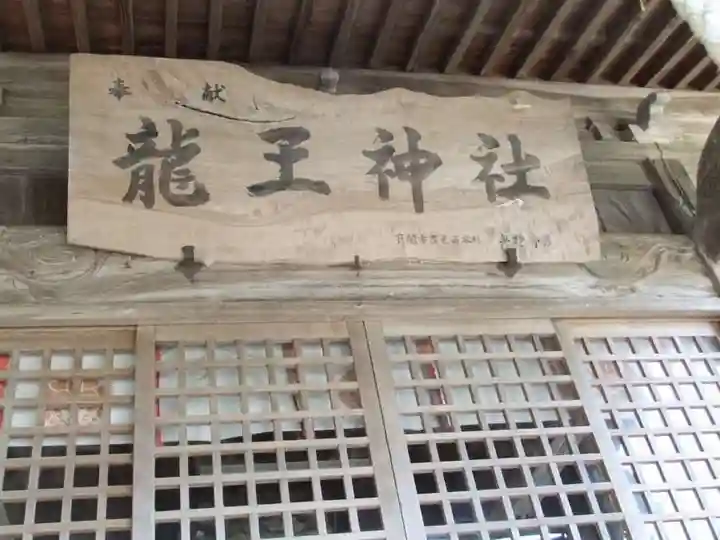 奉献
龍王神社